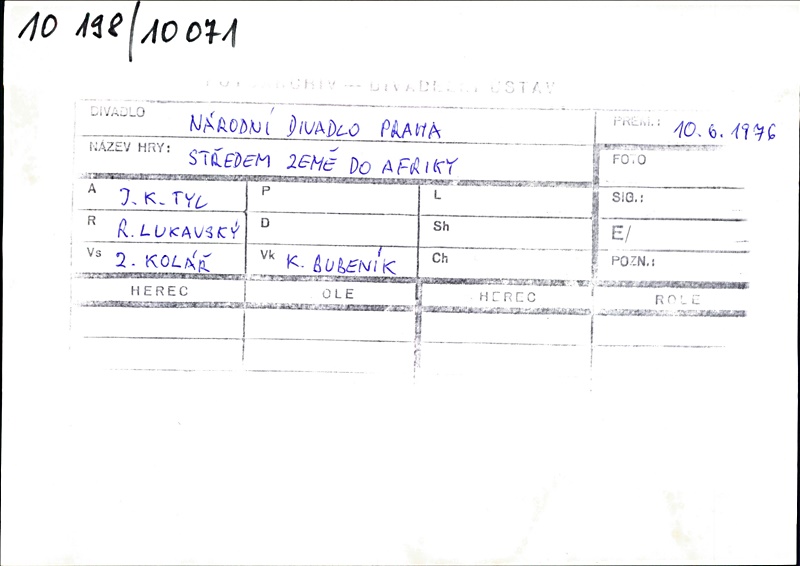 10 198/10 071
FOTOARCHIV — DIVADELNÍ ÚSTAV
DIVADLO NÁRODNÍ DIVADLO PRAHA PREM.: 10.6.1976
NÁZEV HRY: STŘEDEM ZEMĚ DO AFRIKY FOTO
A J.K.TYL P L SIG.:
R R.LUKAVSKÝ D Sh E/
Vs Z.KOLÁŘ Vk K.BUBENÍK Ch POZN.:
HEREC OLE HEREC ROLE